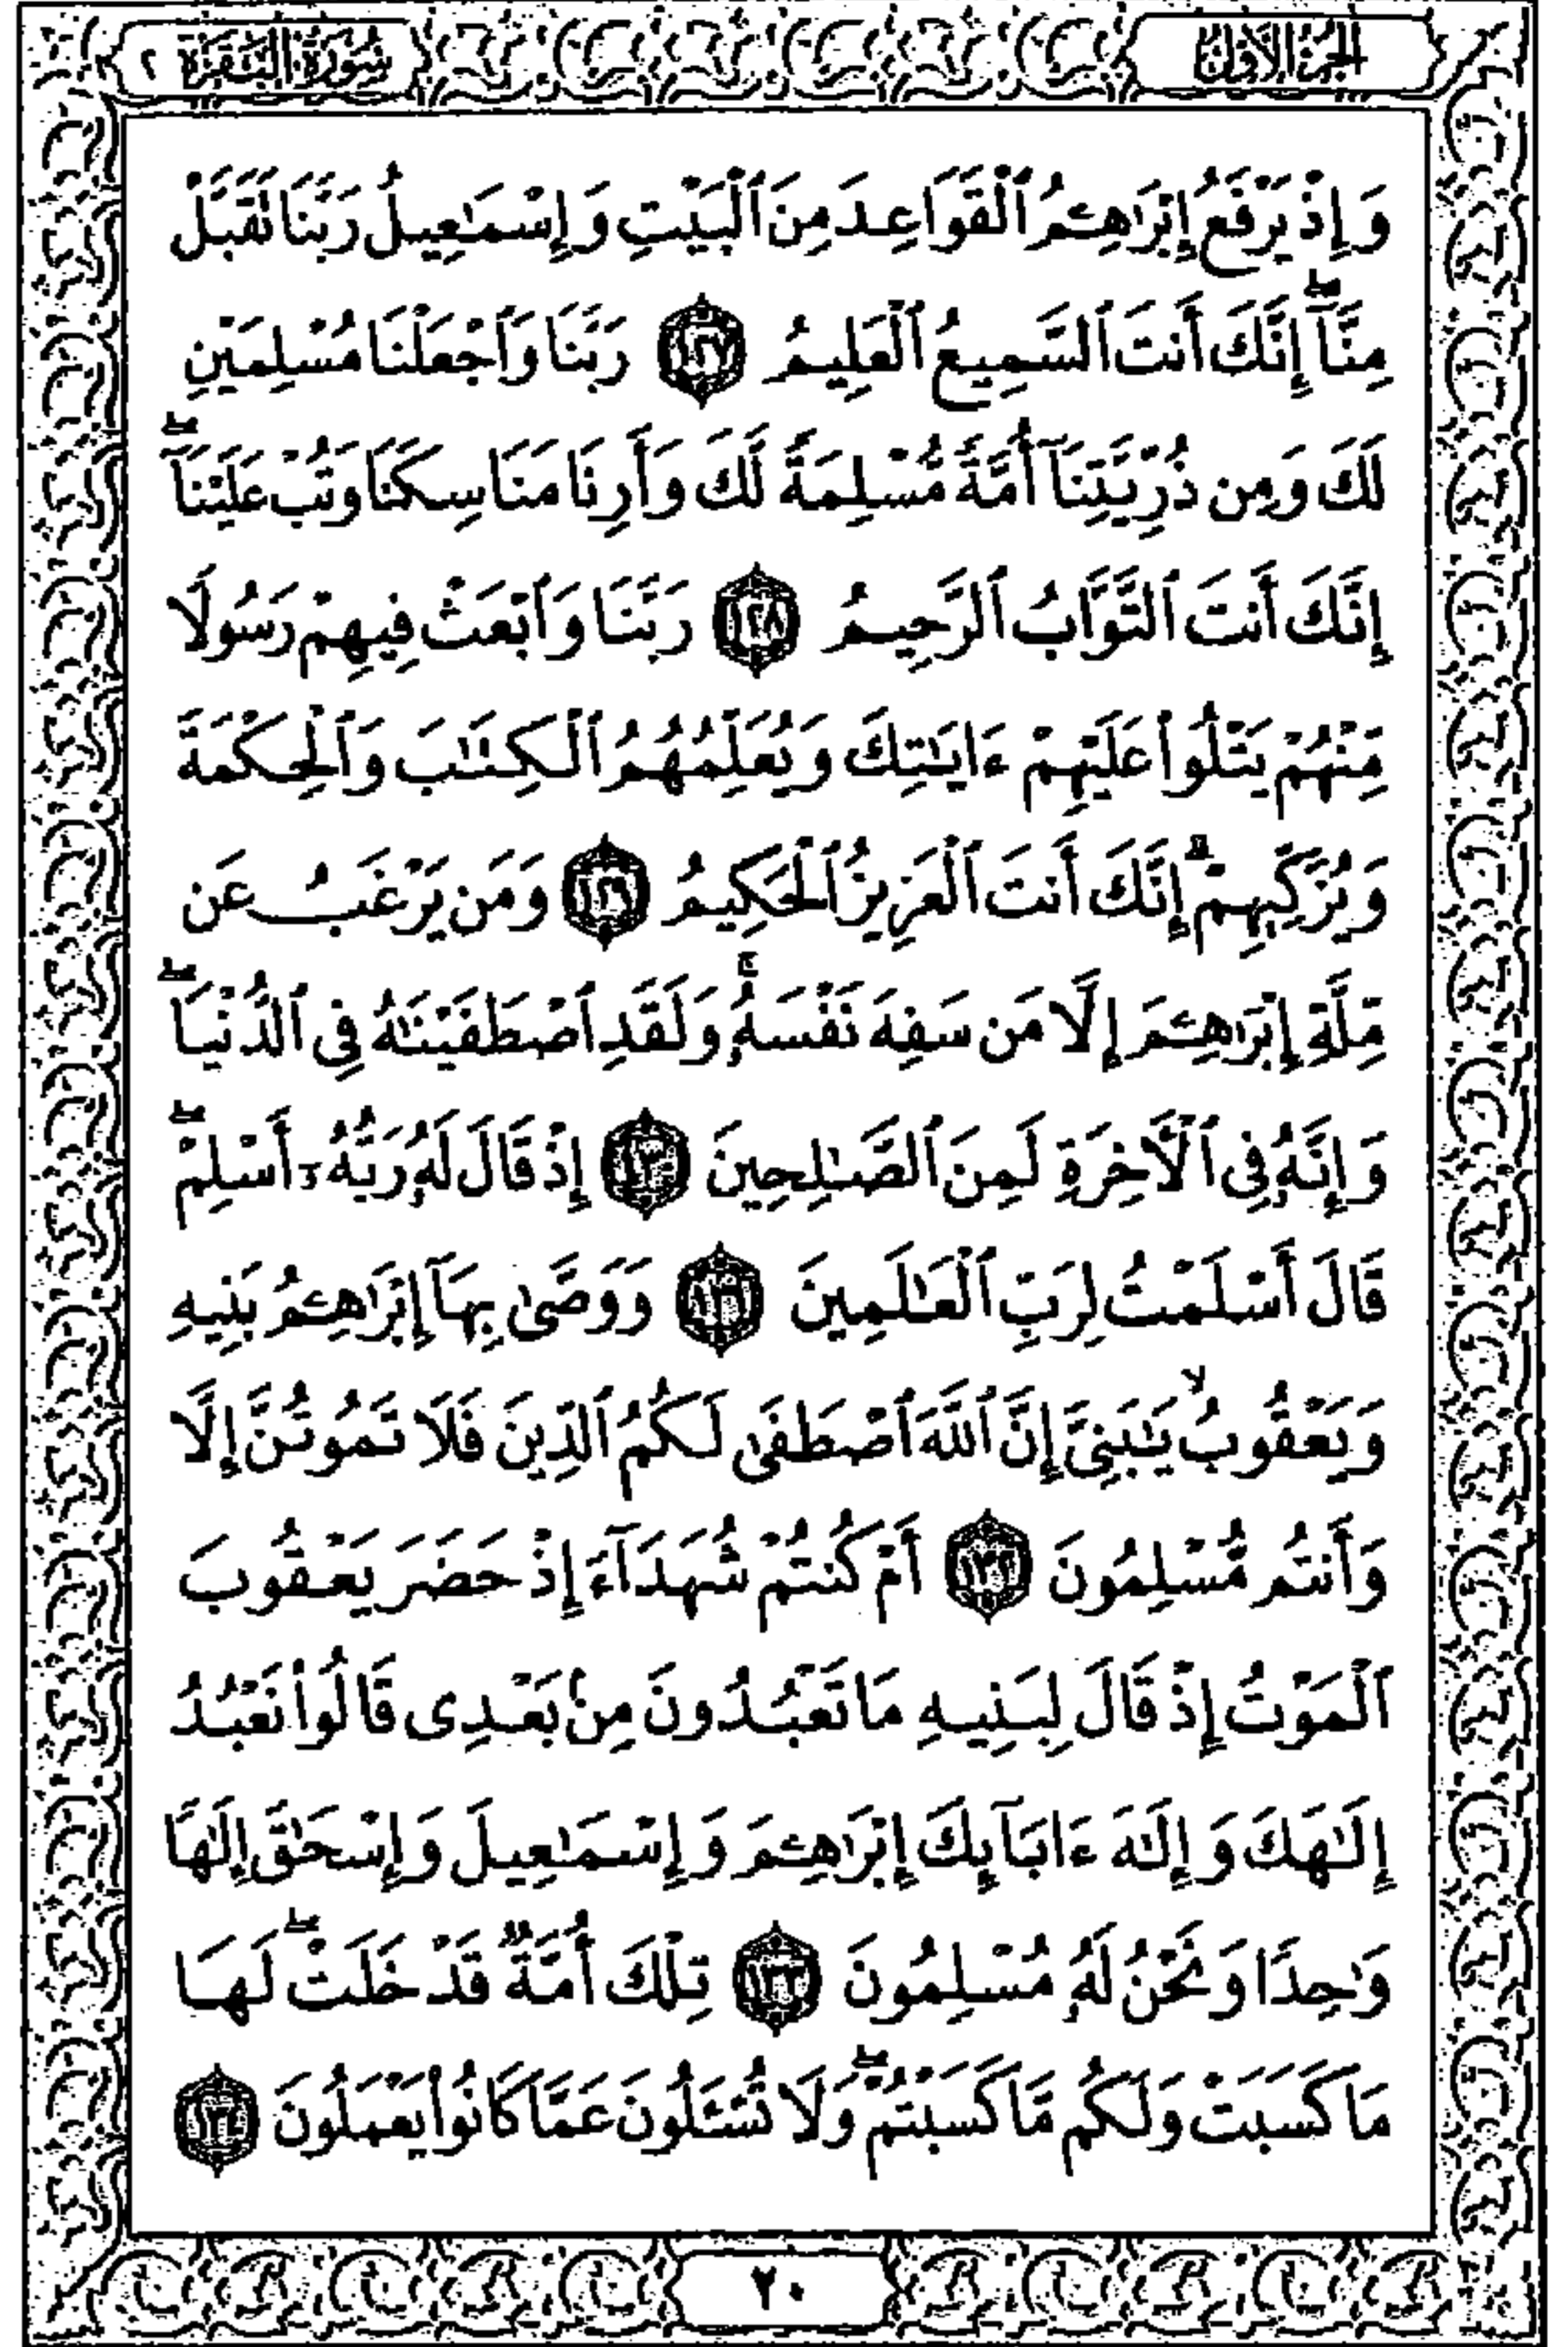 الجزء الأول
سورة البقرة ٢
وَإِذْ يَرْفَعُ إِبْرَٰهِـۧمُ ٱلْقَوَاعِدَ مِنَ ٱلْبَيْتِ وَإِسْمَـٰعِيلُ رَبَّنَا تَقَبَّلْ
مِنَّآ ۖ إِنَّكَ أَنتَ ٱلسَّمِيعُ ٱلْعَلِيمُ ١٢٧ رَبَّنَا وَٱجْعَلْنَا مُسْلِمَيْنِ
لَكَ وَمِن ذُرِّيَّتِنَآ أُمَّةً مُّسْلِمَةً لَّكَ وَأَرِنَا مَنَاسِكَنَا وَتُبْ عَلَيْنَآ ۖ
إِنَّكَ أَنتَ ٱلتَّوَّابُ ٱلرَّحِيمُ ١٢٨ رَبَّنَا وَٱبْعَثْ فِيهِمْ رَسُولًا
مِّنْهُمْ يَتْلُوا۟ عَلَيْهِمْ ءَايَـٰتِكَ وَيُعَلِّمُهُمُ ٱلْكِتَـٰبَ وَٱلْحِكْمَةَ
وَيُزَكِّيهِمْ ۚ إِنَّكَ أَنتَ ٱلْعَزِيزُ ٱلْحَكِيمُ ١٢٩ وَمَن يَرْغَبُ عَن
مِّلَّةِ إِبْرَٰهِـۧمَ إِلَّا مَن سَفِهَ نَفْسَهُۥ ۚ وَلَقَدِ ٱصْطَفَيْنَـٰهُ فِى ٱلدُّنْيَا ۖ
وَإِنَّهُۥ فِى ٱلْـَٔاخِرَةِ لَمِنَ ٱلصَّـٰلِحِينَ ١٣٠ إِذْ قَالَ لَهُۥ رَبُّهُۥٓ أَسْلِمْ ۖ
قَالَ أَسْلَمْتُ لِرَبِّ ٱلْعَـٰلَمِينَ ١٣١ وَوَصَّىٰ بِهَآ إِبْرَٰهِـۧمُ بَنِيهِ
وَيَعْقُوبُ ۙ يَـٰبَنِىَّ إِنَّ ٱللَّهَ ٱصْطَفَىٰ لَكُمُ ٱلدِّينَ فَلَا تَمُوتُنَّ إِلَّا
وَأَنتُم مُّسْلِمُونَ ١٣٢ أَمْ كُنتُمْ شُهَدَآءَ إِذْ حَضَرَ يَعْقُوبَ
ٱلْمَوْتُ إِذْ قَالَ لِبَنِيهِ مَا تَعْبُدُونَ مِنۢ بَعْدِى قَالُوا۟ نَعْبُدُ
إِلَـٰهَكَ وَإِلَـٰهَ ءَابَآئِكَ إِبْرَٰهِـۧمَ وَإِسْمَـٰعِيلَ وَإِسْحَـٰقَ إِلَـٰهًا
وَٰحِدًا وَنَحْنُ لَهُۥ مُسْلِمُونَ ١٣٣ تِلْكَ أُمَّةٌ قَدْ خَلَتْ ۖ لَهَا
مَا كَسَبَتْ وَلَكُم مَّا كَسَبْتُمْ ۖ وَلَا تُسْـَٔلُونَ عَمَّا كَانُوا۟ يَعْمَلُونَ ١٣٤
٢٠